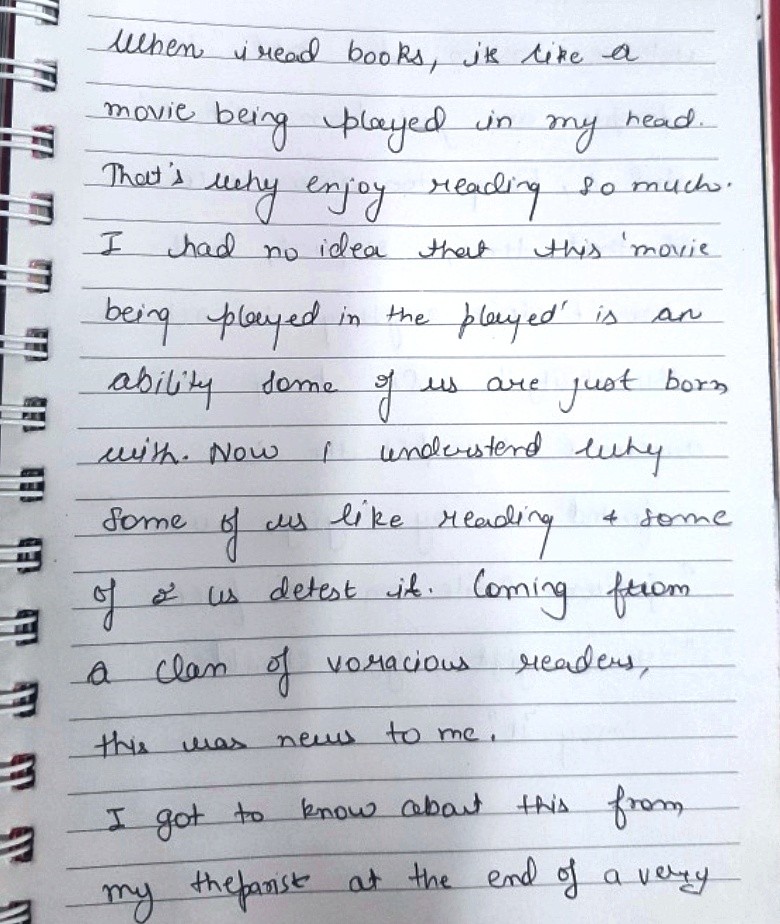 When i read books, its like a
movie being played in my head.
That's why enjoy reading so much.
I had no idea that this 'movie
being played in the played' is an
ability some of us are just born
with. Now I understand why
some of us like reading + some
of us detest it. Coming from
a clan of voracious readers,
this was news to me.
I got to know about this from
my theparist at the end of a very